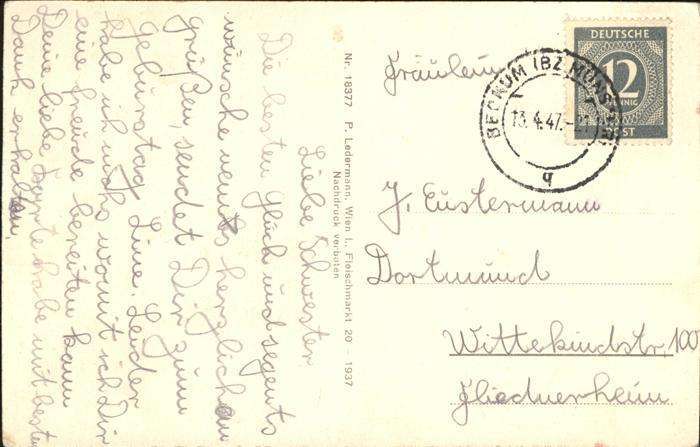 Liebe Schwester.
Die besten Glück und segens
wünsche nebst herzlichen
grüßen, sendet Dir zum
Geburstag Line. Leider
habe ich nichts womit ich Dir
eine freude bereiten kann
Deine liebe Karte habe mit besten
Dank erhalten.
Nr. 18377 P. Ledermann, Wien I., Fleischmarkt 20 - 1937
Nachdruck verboten
DEUTSCHE
12
POST
BECKUM (BZ. MÜNSTER)
13.4.47.
q
Fräulein
J. Eustermann
Dortmund
Wittekindstr, 100
Fliednerheim